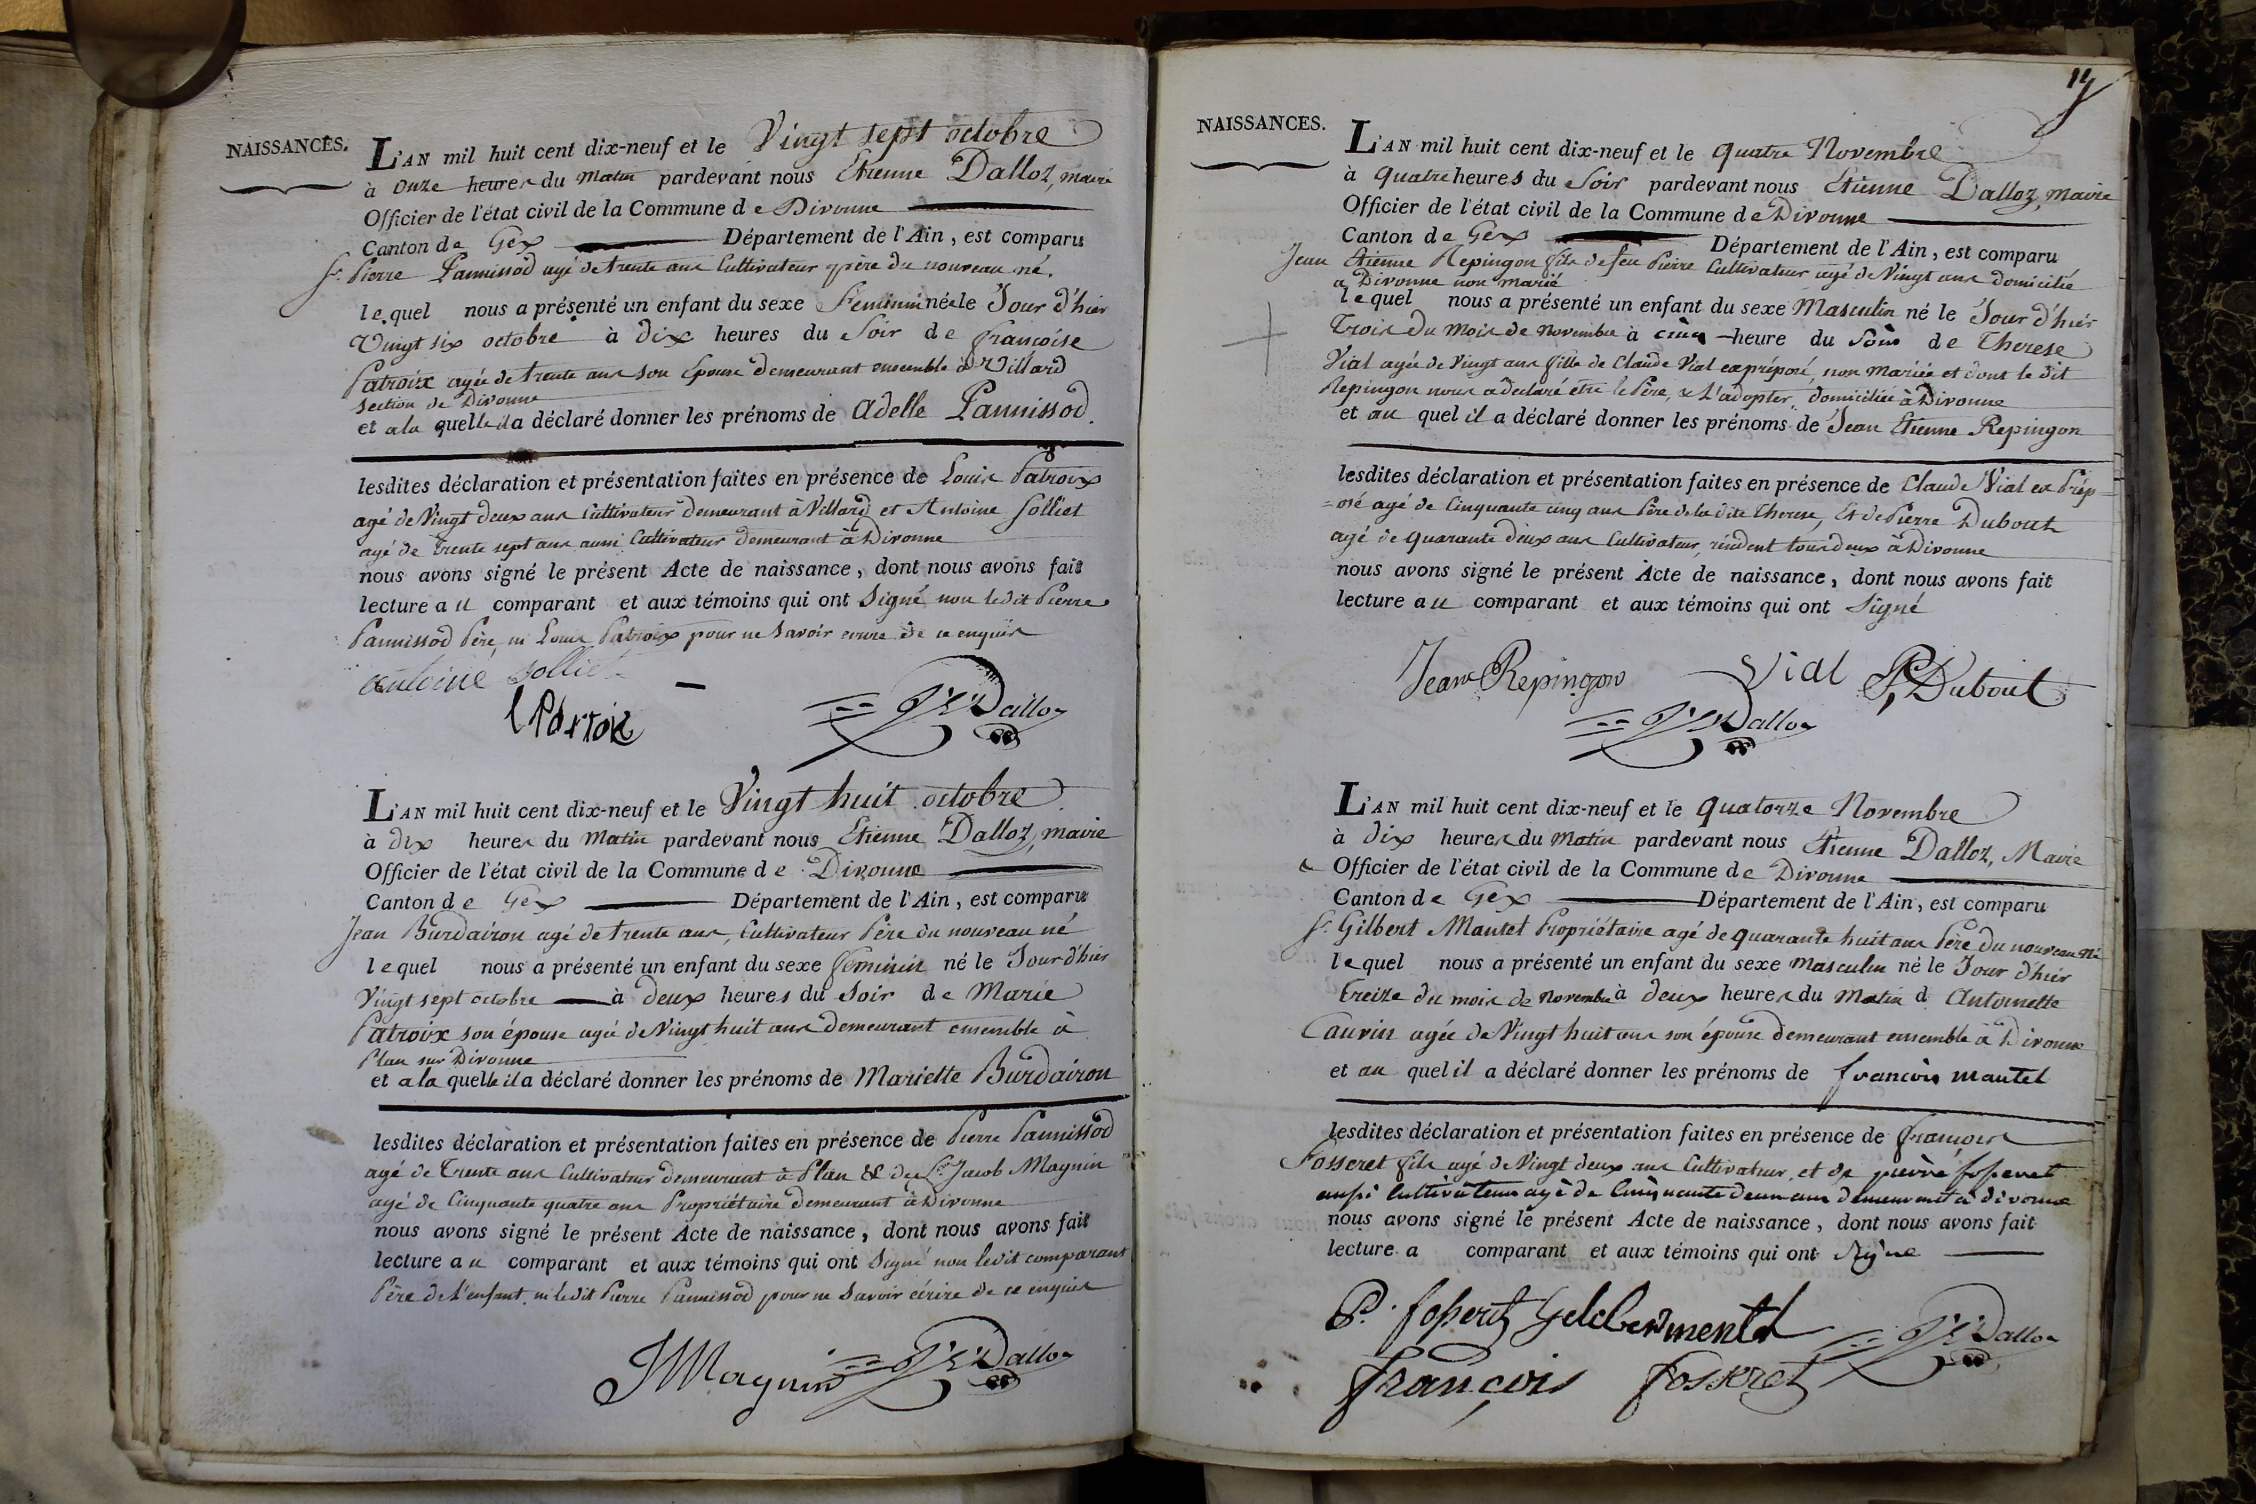 NAISSANCES.
L'AN mil huit cent dix-neuf et le Vingt sept octobre
à onze heures du matin pardevant nous Etienne Dalloz, maire
Officier de l'état civil de la Commune de Divonne
Canton de Gex Département de l'Ain, est comparu
Sr. Pierre Pannissod agé de trente ans Cultivateur père du nouveau né.
lequel nous a présenté un enfant du sexe Feminin née le Jour d'hier
Vingt six octobre à dix heures du Soir de françoise
Patroix agée de trente ans son Epouse demeurant ensemble à Villard
section de Divonne
et a la quelle il a déclaré donner les prénoms de Adelle Pannissod.
lesdites déclaration et présentation faites en présence de Louis Patroix
agé de Vingt deux ans Cultivateur demeurant à Villard et Antoine Solliet
agé de trente sept ans aussi Cultivateur demeurant à Divonne
nous avons signé le présent Acte de naissance, dont nous avons fait
lecture au comparant et aux témoins qui ont Signé non ledit Pierre
Pannissod Père, ni Louis Patroix pour ne Savoir ecrire de ce enquis
antoine solliet
PDalloz
L'AN mil huit cent dix-neuf et le Vingt huit octobre
à dix heures du matin pardevant nous Etienne Dalloz, maire
Officier de l'état civil de la Commune de Divonne
Canton de Gex Département de l'Ain, est comparu
Jean Burdairon agé de trente ans, Cultivateur Père du nouveau né
lequel nous a présenté un enfant du sexe feminin né le Jour d'hier
Vingt sept octobre à deux heures du Soir de Marie
Patroix son épouse agée de Vingt huit ans demeurant ensemble à
Plan sur Divonne
et a la quelle il a déclaré donner les prénoms de Mariette Burdairon
lesdites déclaration et présentation faites en présence de Pierre Pannissod
agé de Trente ans Cultivateur demeurant à Plan & de Sr. Jacob Magnin
agé de Cinquante quatre ans Propriétaire demeurant à Divonne
nous avons signé le présent Acte de naissance, dont nous avons fait
lecture au comparant et aux témoins qui ont Signé non ledit comparant
Père de l'enfant, ni ledit Pierre Pannissod pour ne Savoir écrire de ce enquis
JMagnin Dalloz
NAISSANCES.
L'AN mil huit cent dix-neuf et le quatre Novembre
à quatre heures du Soir pardevant nous Etienne Dalloz, maire
Officier de l'état civil de la Commune de Divonne
Canton de Gex Département de l'Ain, est comparu
Jean Etienne Repingon fils de feu Pierre Cultivateur agé de Vingt ans domicilié
à Divonne non marié
lequel nous a présenté un enfant du sexe Masculin né le Jour d'hier
Trois du mois de novembre à cinq heure du Soir de Therese
Vial agée de Vingt ans fille de Claude Vial ex préposé, non mariée et dont le dit
Repingon nous a declaré être le Père, & L'adopter, domiciliée à Divonne
et au quel il a déclaré donner les prénoms de Jean Etienne Repingon
lesdites déclaration et présentation faites en présence de Claude Vial ex Prép=
=osé agé de Cinquante cinq ans Père de la dite Therese, Et de Pierre Dubout
agé de quarante deux ans Cultivateur, résident tous deux à Divonne
nous avons signé le présent Acte de naissance, dont nous avons fait
lecture au comparant et aux témoins qui ont Signé
Jean Repingon Vial P Dubout
Dalloz
L'AN mil huit cent dix-neuf et le quatorze Novembre
à dix heures du Matin pardevant nous Etienne Dalloz, Maire
Officier de l'état civil de la Commune de Divonne
Canton de Gex Département de l'Ain, est comparu
Sr. Gilbert Mantet Propriétaire agé de quarante huit ans Père du nouveau né
lequel nous a présenté un enfant du sexe masculin né le Jour d'hier
treize du mois de novembre à deux heures du Matin d Antoinette
Cauvin agée de Vingt huit ans son épouse demeurant ensemble à Divonne
et au quel il a déclaré donner les prénoms de françois mantel
lesdites déclaration et présentation faites en présence de françois
Fosseret fils agé de Vingt deux ans Cultivateur, et de pierre fosseret
aussi Cultivateur agé de Cinquante deux ans demeurant à divonne
nous avons signé le présent Acte de naissance, dont nous avons fait
lecture a comparant et aux témoins qui ont signe
P. fosseret
françois fosseret Dalloz